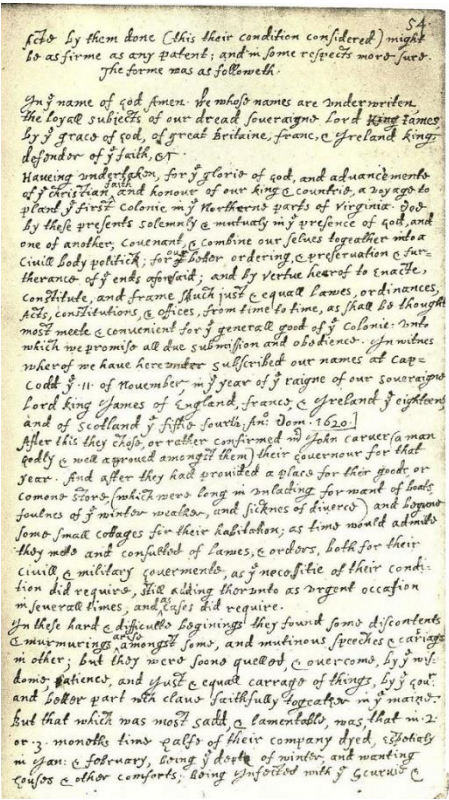 54.
Acte by them done (this their condition considered) might
be as firme as any patent; and in some respects more sure.
The forme was as followeth.
In yͤ name of god Amen. We whose names are underwriten,
the loyall subjects of our dread soveraigne Lord King James,
by yͤ grace of god, of great Britaine, franc, & Ireland king,
defender of yͤ faith, &c
Haveing undertaken, for yͤ glorie of god, and advancemente
of yͤ christian faith, and honour of our king & countrie, a voyage to
plant yͤ first colonie in yͤ Northerne parts of Virginia. Doe
by these presents solemnly & mutualy in yͤ presence of god, and
one of another, covenant, & combine our selves togeather into a
Civill body politick; for our better ordering, & preservation & fur-
therance of yͤ ends aforesaid; and by vertue hearof to Enacte,
constitute, and frame such just & equall Lawes, ordinances,
Acts, constitutions, & offices, from time to time, as shall be thought
most meete & convenient for yͤ generall good of yͤ colonie: unto
which we promise all due submission and obedience. In witnes
wherof we have hereunder subscribed our names at Cap-
Codd yͤ .11. of November, in yͤ year of yͤ raigne of our soveraigne
Lord king James of England, france, & Ireland yͤ eighteenth
and of Scotland yͤ fiftie fourth. Anͦ: Dom. 1620.]
After this they chose, or rather confirmed mͬ John carver (a man
godly & well aproved amongst them) their governour for that
year. And after they had provided a place for their goods, or
comone store, (which were long in unlading for want of boats,
foulnes of yͤ winter weather, and sicknes of diverce) and begune
some small cottages for their habitation; as time would admite
they mete and consulted of Lawes, & orders, both for their
civill, & military govermente, as yͤ necessitie of their condi-
tion did require, still adding therunto as urgent occasion
in severall times, and as cases did require.
In these hard & difficulte beginings they found some discontents
& murmurings arise amongst some, and mutinous speeches & cariags
in other; but they were soone quelled, & overcome, by yͤ wis-
dome, patience, and just & equall carrage of things, by yͤ govͬ
and better part wch clave faithfully togeather in yͤ maine.
But that which was most sadd, & lamentable, was, that in .2.
or .3. moneths time halfe of their company dyed, espetialy
in Jan: & february, being yͤ depth of winter, and wanting
houses & other comforts; being Infected with yͤ Scurvie &